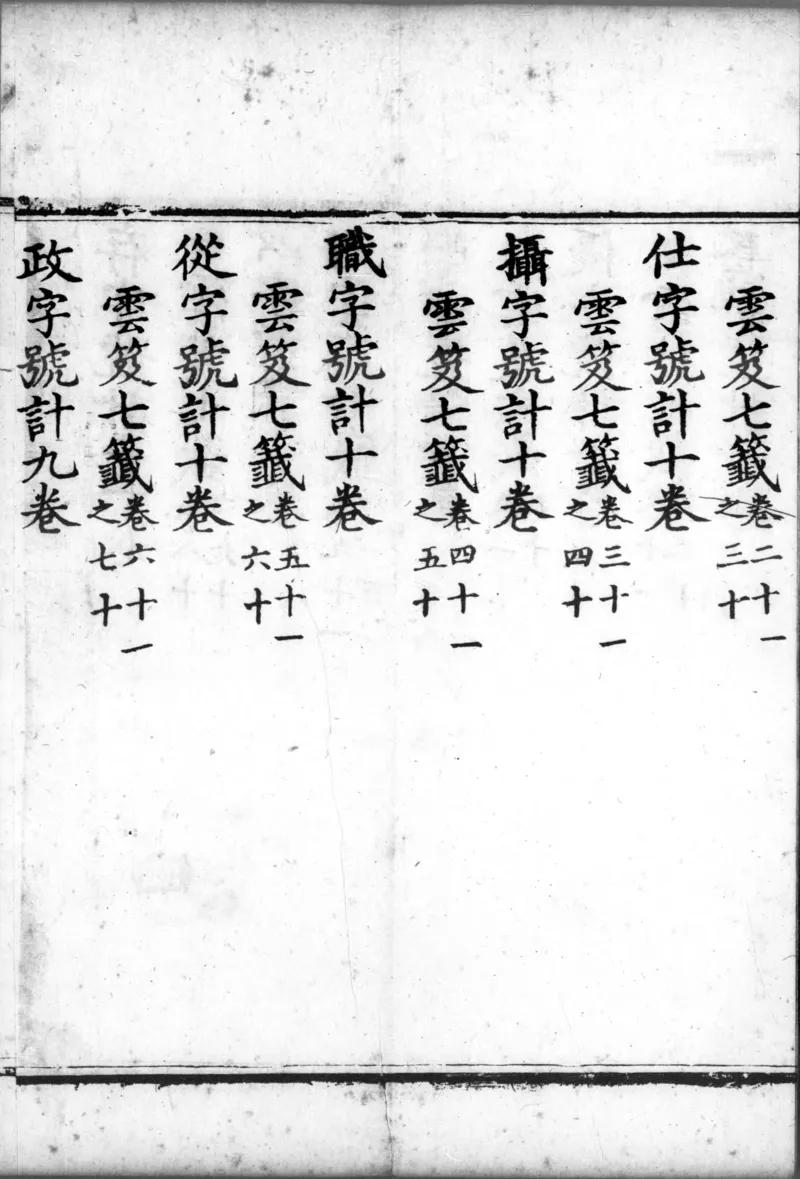 雲笈七籤卷二十一之三十
仕字號計十卷
雲笈七籤卷三十一之四十
攝字號計十卷
雲笈七籤卷四十一之五十
職字號計十卷
雲笈七籤卷五十一之六十
從字號計十卷
雲笈七籤卷六十一之七十
政字號計九卷